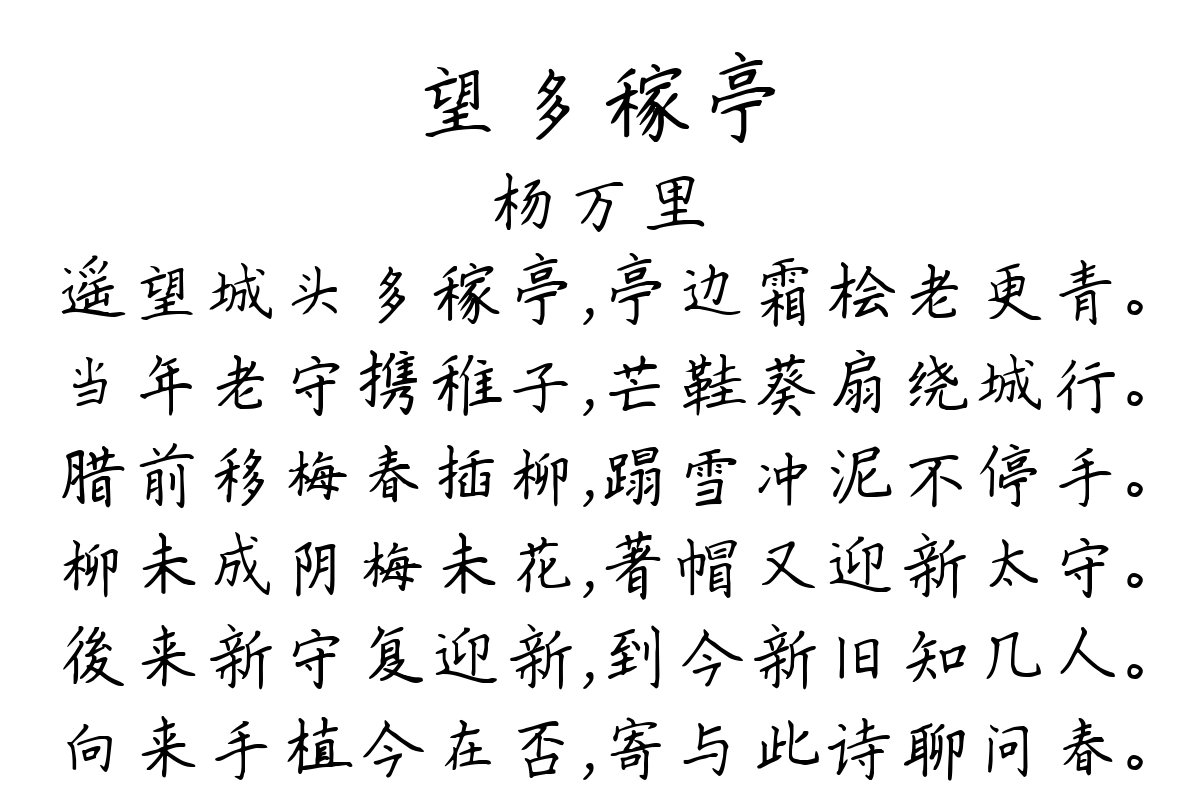 望多稼亭
杨万里
遥望城头多稼亭,亭边霜桧老更青。
当年老守携稚子,芒鞋葵扇绕城行。
腊前移梅春插柳,蹋雪冲泥不停手。
柳未成阴梅未花,著帽又迎新太守。
後来新守复迎新,到今新旧知几人。
向来手植今在否,寄与此诗聊问春。